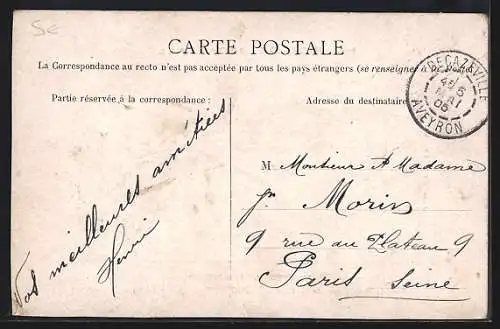 5e
CARTE POSTALE
La Correspondance au recto n'est pas acceptée par tous les pays étrangers (se renseigner à
Partie réservée à la correspondance :
Adresse du destinataire
DECAZEVILLE
5
MAI
05
AVEYRON
M Monsieur et Madame
Morin
9 rue du Plateau 9
Paris Seine
Vos meilleures amitiées
Henri